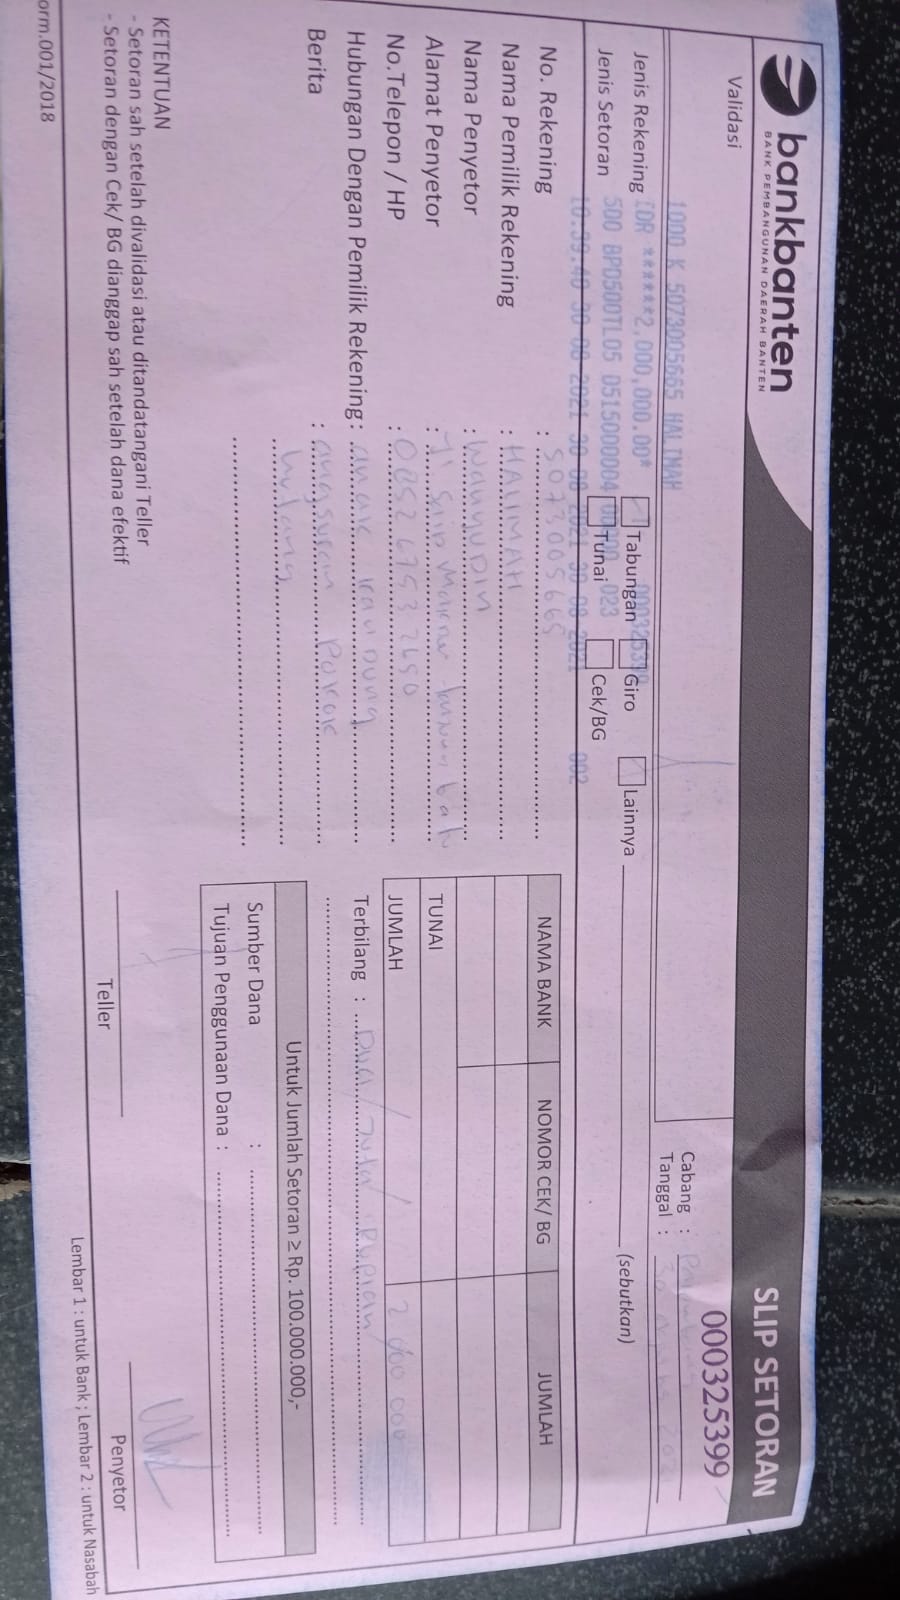 bankbanten
BANK PEMBANGUNAN DAERAH BANTEN
SLIP SETORAN
000325399
Validasi
1000 K 5073005665 HALIMAH
IDR ******2,000,000.00*
000325399
500 BPD500TL05 0515000004 00000 023
10.09.40 30 08 2021 30 08 2021 30 08 2021 002
Cabang :
Tanggal : 30 2021
Jenis Rekening
Tabungan
Giro
Lainnya
(sebutkan)
Jenis Setoran
Tunai
Cek/BG
No. Rekening : 5073005665
Nama Pemilik Rekening : HALIMAH
Nama Penyetor : WAHYUDIN
Alamat Penyetor :
No.Telepon / HP : 085267532650
Hubungan Dengan Pemilik Rekening : anak kandung
Berita : angsuran Pokok
hutang
NAMA BANK NOMOR CEK/ BG JUMLAH
TUNAI
JUMLAH 2 000 000
Terbilang : Dua Juta Rupiah
Untuk Jumlah Setoran ≥ Rp. 100.000.000,-
Sumber Dana :
Tujuan Penggunaan Dana :
KETENTUAN
- Setoran sah setelah divalidasi atau ditandatangani Teller
- Setoran dengan Cek/ BG dianggap sah setelah dana efektif
Teller
Penyetor
orm.001/2018
Lembar 1 : untuk Bank ; Lembar 2 : untuk Nasabah